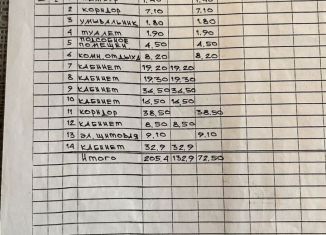 2 коридор 7.10 7.10
3 умывальник 1.80 1.80
4 туалет 1.90 1.90
5 подсобное помещен 4,50 4,50
6 комн.отдыха 8,20 8,20
7 кабинет 19,20 19,20
8 кабинет 19,30 19,30
9 кабинет 36,50 36,50
10 кабинет 16,50 16,50
11 коридор 38,50 38,50
12 кабинет 8,50 8,50
13 эл.щитовая 9,10 9,10
14 кабинет 32,9 32,9
Итого 205,4 132,9 72,50